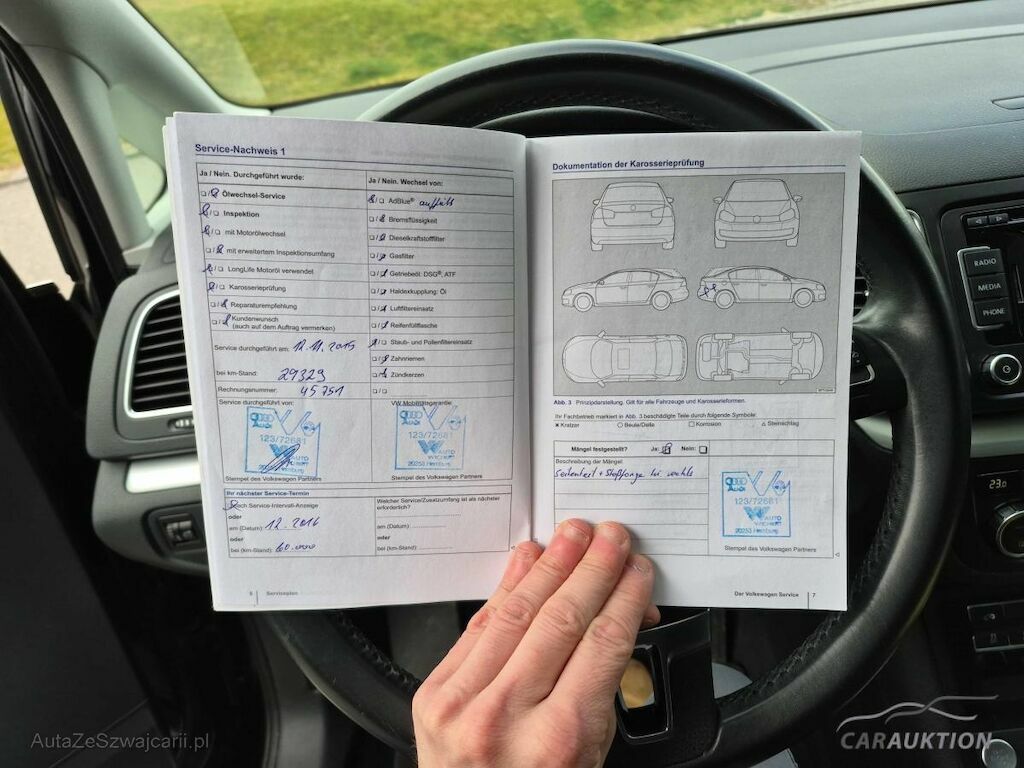 Service-Nachweis 1
Ja / Nein. Durchgeführt wurde:
Ölwechsel-Service
Inspektion
mit Motorölwechsel
mit erweitertem Inspektionsumfang
LongLife Motoröl verwendet
Karosserieprüfung
Reparaturempfehlung
Kundenwunsch
(auch auf dem Auftrag vermerken)
Service durchgeführt am: 12.11.2015
bei km-Stand: 29329
Rechnungsnummer: 45751
Service durchgeführt von:
Audi
123/72681
AUTO
WICHERT
20253 Hamburg
Stempel des Volkswagen Partners
Ja / Nein. Wechsel von:
AdBlue®
Bremsflüssigkeit
Dieselkraftstofffilter
Gasfilter
Getriebeöl: DSG®, ATF
Haldexkupplung: Öl
Luftfiltereinsatz
Reifenfüllflasche
Staub- und Pollenfiltereinsatz
Zahnriemen
Zündkerzen
VW Mobilitätsgarantie:
Audi
123/72681
AUTO
WICHERT
20253 Hamburg
Stempel des Volkswagen Partners
Ihr nächster Service-Termin
nach Service-Intervall-Anzeige
oder
am (Datum): 12.2016
oder
bei (km-Stand): 60.000
Welcher Service/Zusatzumfang ist als nächster
erforderlich?
am (Datum)
oder
bei (km-Stand):
6 Serviceplan
Dokumentation der Karosserieprüfung
Abb. 3 Prinzipdarstellung. Gilt für alle Fahrzeuge und Karosserieformen.
Ihr Fachbetrieb markiert in Abb. 3 beschädigte Teile durch folgende Symbole:
× Kratzer ○ Beule/Delle □ Korrosion △ Steinschlag
Mängel festgestellt? Ja: Nein:
Beschreibung der Mängel:
Seitenteil + Stoßfänger hi rechts
Audi
123/72681
AUTO
WICHERT
20253 Hamburg
Stempel des Volkswagen Partners
Der Volkswagen Service 7
RADIO
MEDIA
PHONE
23.0
AutaZeSzwajcarii.pl
CARAUKTION